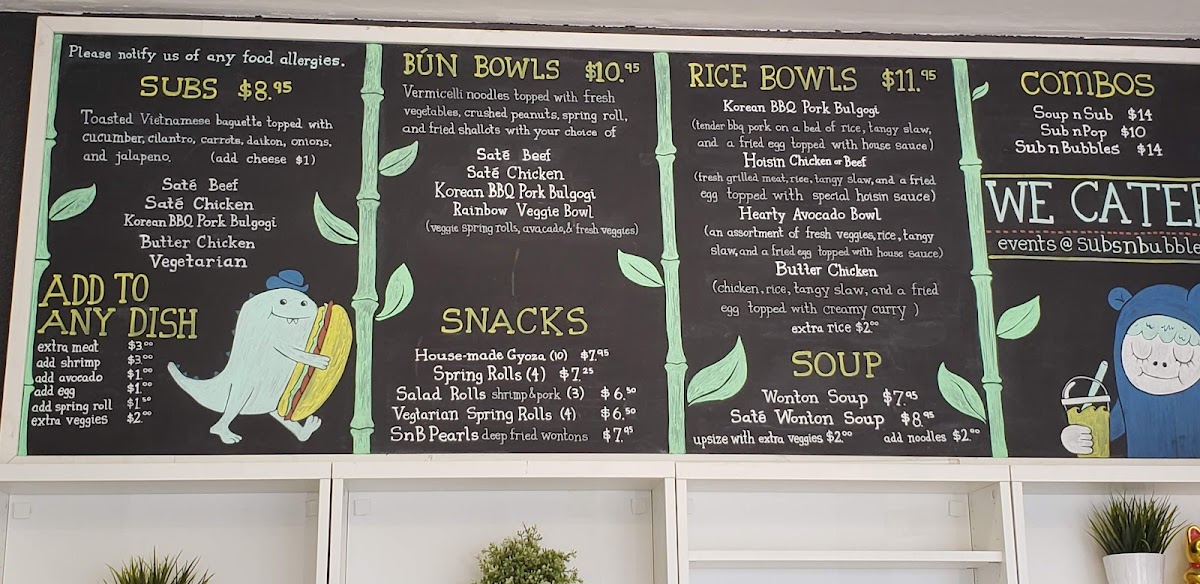 Please notify us of any food allergies.
SUBS $8.95
Toasted Vietnamese baguette topped with
cucumber, cilantro, carrots, daikon, onions,
and jalapeno. (add cheese $1)
Saté Beef
Saté Chicken
Korean BBQ Pork Bulgogi
Butter Chicken
Vegetarian
ADD TO
ANY DISH
extra meat $3.00
add shrimp $3.00
add avocado $1.00
add egg $1.00
add spring roll $1.50
extra veggies $2.00
BÚN BOWLS $10.95
Vermicelli noodles topped with fresh
vegetables, crushed peanuts, spring roll,
and fried shallots with your choice of
Saté Beef
Saté Chicken
Korean BBQ Pork Bulgogi
Rainbow Veggie Bowl
(veggie spring rolls, avacado, & fresh veggies)
SNACKS
House-made Gyoza (10) $7.95
Spring Rolls (4) $7.25
Salad Rolls shrimp & pork (3) $6.50
Vegtarian Spring Rolls (4) $6.50
SnB Pearls deep fried wontons $7.95
RICE BOWLS $11.95
Korean BBQ Pork Bulgogi
(tender bbq pork on a bed of rice, tangy slaw,
and a fried egg topped with house sauce)
Hoisin Chicken or Beef
(fresh grilled meat, rice, tangy slaw, and a fried
egg topped with special hoisin sauce)
Hearty Avocado Bowl
(an assortment of fresh veggies, rice, tangy
slaw, and a fried egg topped with house sauce)
Butter Chicken
(chicken, rice, tangy slaw, and a fried
egg topped with creamy curry)
extra rice $2.00
SOUP
Wonton Soup $7.95
Saté Wonton Soup $8.95
upsize with extra veggies $2.00 add noodles $2.00
COMBOS
Soup n Sub $14
Sub n Pop $10
Sub n Bubbles $14
WE CATER
events@subsnbubble